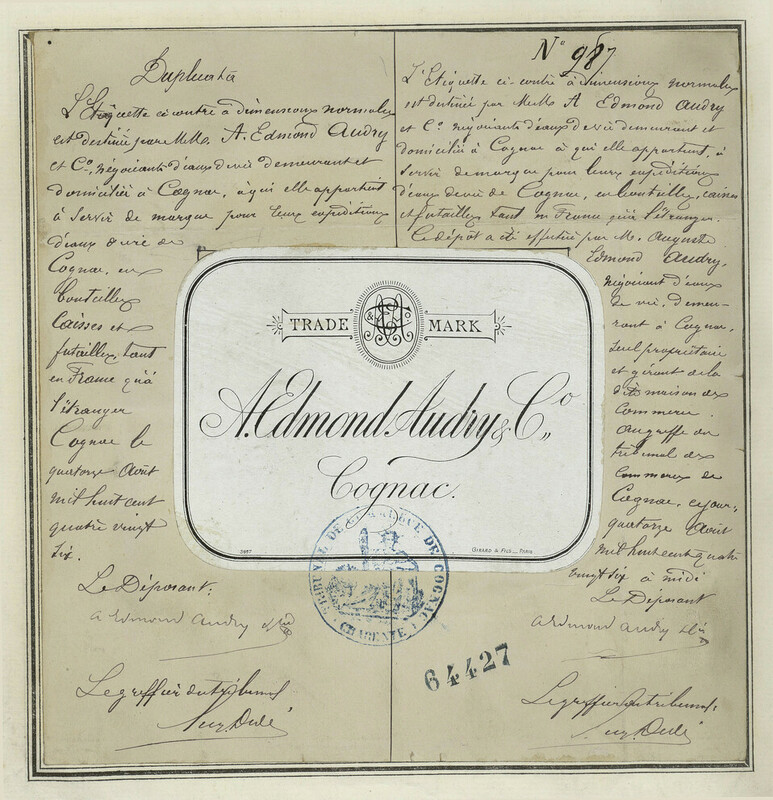 Duplicata
L'Etiquette ci contre à dimensions normales
est destinée par MMrs. A. Edmond Audry
et Co, négociants d'eaux de vie demeurant et
domiciliés à Cognac, à qui elle appartient
à servir de marque pour leurs expéditions
d'eaux de vie de
Cognac, en
bouteilles
Caisses et
futailles, tant
en France qu'à
l'étranger
Cognac le
quatorze Août
mil huit cent
quatre vingt
six.
Le Déposant.
A Edmond Audry &
Le greffier du tribunal
N° 987
L'Etiquette ci-contre à dimensions normales
est destinée par MMrs A Edmond Audry
et Co. négociants d'eaux de vie demeurant et
domiciliés à Cognac à qui elle appartient, à
servir de marque pour leurs expéditions
d'eaux de vie de Cognac, en bouteilles, caisses
et futailles tant en France qu'à l'étranger.
Ce dépôt a été effectué par M. Auguste
Edmond Audry,
négociant d'eaux
de vie, demeu-
rant à Cognac,
seul propriétaire
et gérant de la
dite maison de
Commerce.
au greffe du
tribunal de
Commerce de
Cognac, ce jour,
quatorze Août
mil huit cent quatre
vingt six à midi
Le Déposant
A Edmond Audry &
Le greffier du tribunal
TRADE MARK
A. Edmond Audry & Co,,
Cognac.
3957
GIRARD & FILS__PARIS
TRIBUNAL DE COMMERCE DE COGNAC
CHARENTE
64427